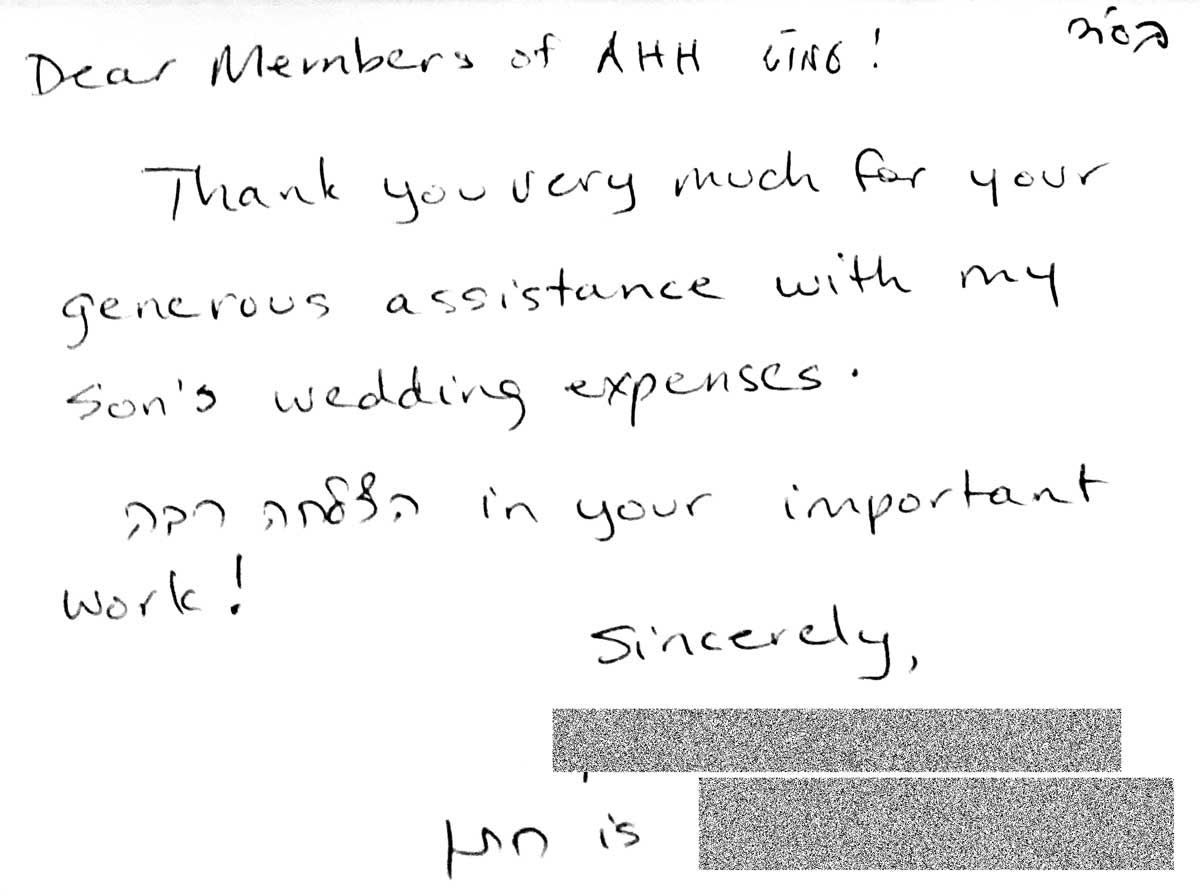 בס"ד
Dear Members of AHH
Thank you very much for your
generous assistance with my
son's wedding expenses.
הצלחה רבה in your important
work!
Sincerely,
חתן is